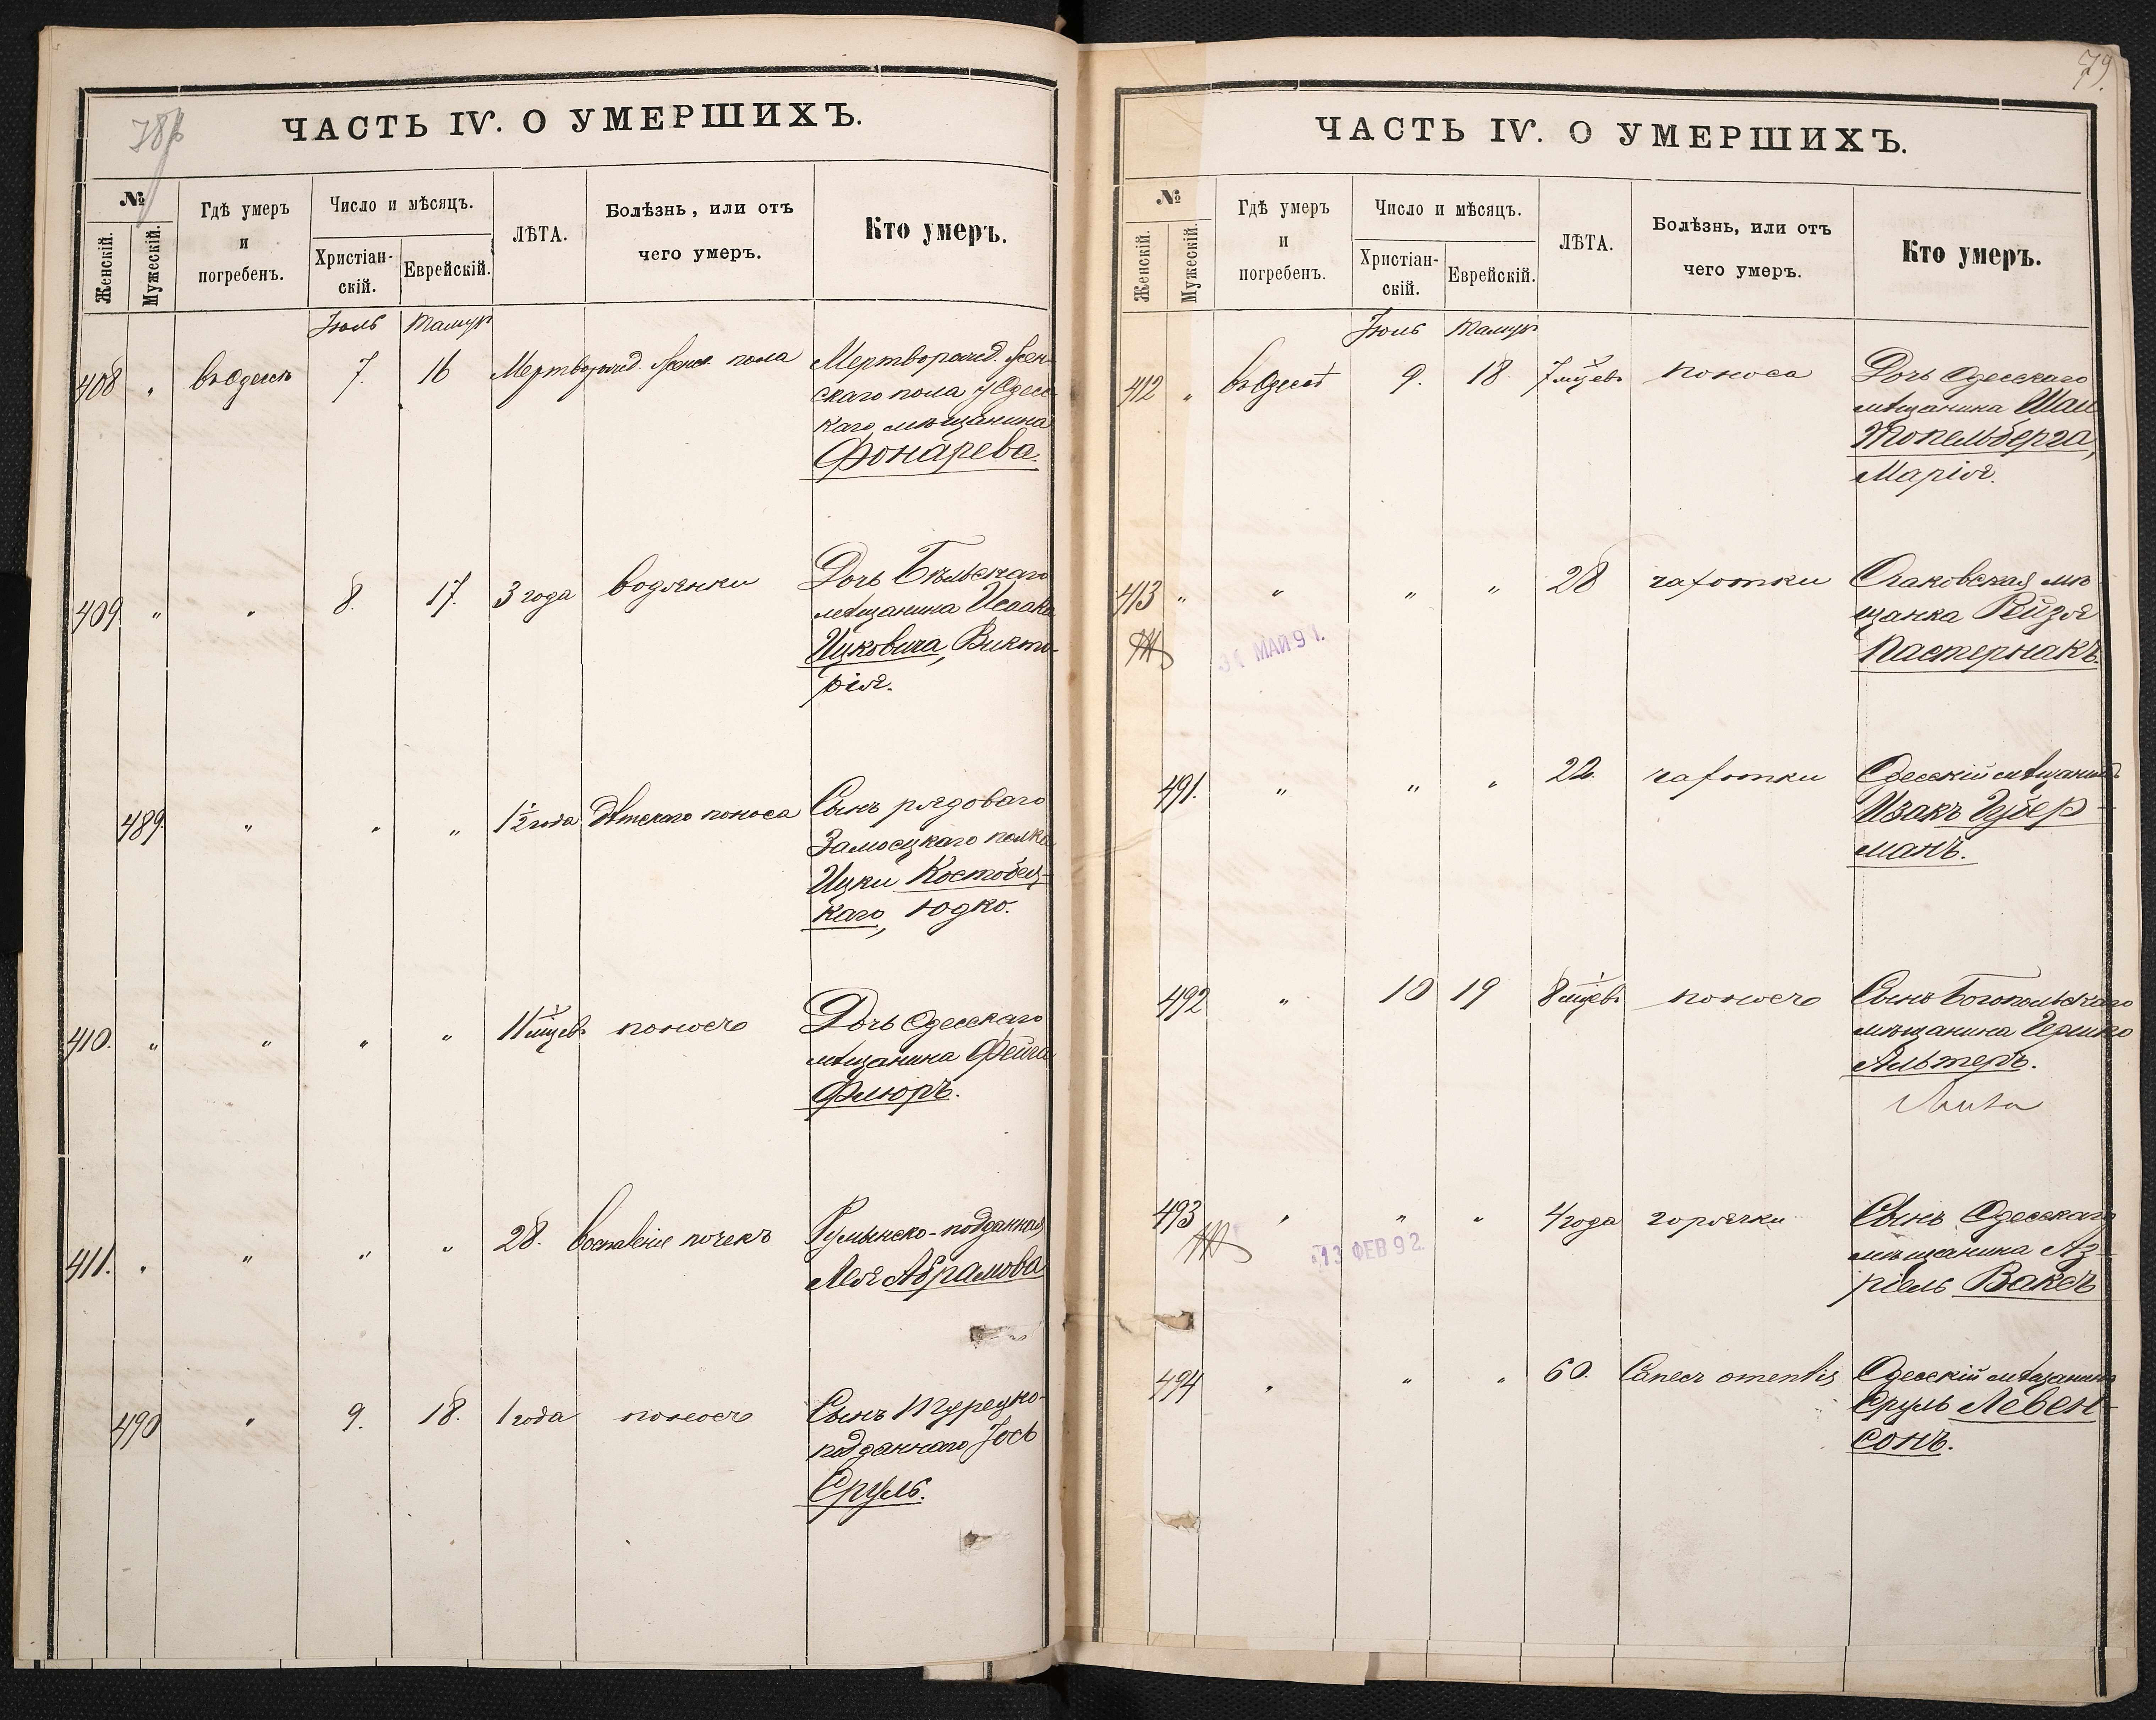 ЧАСТЬ IV. О УМЕРШИХЪ.
№
Женскій.
Мужескій.
Гдѣ умеръ
и
погребенъ.
Число и мѣсяцъ.
Христіан-
скій.
Еврейскій.
ЛѢТА.
Болѣзнь, или отъ
чего умеръ.
Кто умеръ.
Іюль
408 „ въ Одессѣ 7. 16 Мертворожд. женс. пола Мертворожд. жен-
скаго пола у Одес-
каго мѣщанина
Фонарева.
409 „ „ 8. 17. 3 года водянки Дочь Бѣльскаго
мѣщанина Исаака
Ицковича, Викто-
рія.
489. „ „ „ 1½ года Дѣтскаго поноса Сынъ рядоваго
Замосцкаго полка
Ицки Костобец-
каго, Юдко.
410. „ „ „ „ 11 мѣцевъ поносъ Дочь Одесскаго
мѣщанина Фейга
Флюръ.
411. „ „ „ „ 28. воспаленіе почекъ Румынско-подданная
Лея Абрамова
490 „ 9. 18. 1 года поносъ Сынъ Турецко-
подданнаго Іось
Сруль.
79.
ЧАСТЬ IV. О УМЕРШИХЪ.
№
Женскій.
Мужескій.
Гдѣ умеръ
и
погребенъ.
Число и мѣсяцъ.
Христіан-
скій.
Еврейскій.
ЛѢТА.
Болѣзнь, или отъ
чего умеръ.
Кто умеръ.
Іюль
412 „ въ Одессѣ 9. 18. 7 мѣцевъ поноса Дочь Одесскаго
мѣщанина
Топельберга,
Марія.
413 „ „ „ „ 28 чахотки Очаковская мѣ-
щанка Рейзя
Пастернакъ.
31 МАЙ 91.
491. „ „ „ 22. чахотки Одесскій мѣщанинъ
Изакъ Губер-
манъ.
492 „ 10 19 8 мѣцевъ поносъ Сынъ Богопольскаго
мѣщанина Гершко
Альтеръ.
493 „ „ „ 4 года горячки Сынъ Одесскаго
мѣщанина Аз-
ріель Ваксъ
13 ФЕВ 92.
494 „ „ „ 60. Одесскій мѣщанинъ
Сруль Левен-
сонъ.